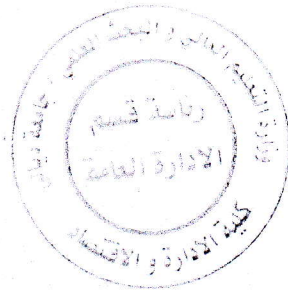 وزارة التعليم العالي و البحث العلمي - جامعة ديالى
رئاسة قسم
الادارة العامة
كلية الادارة و الاقتصاد